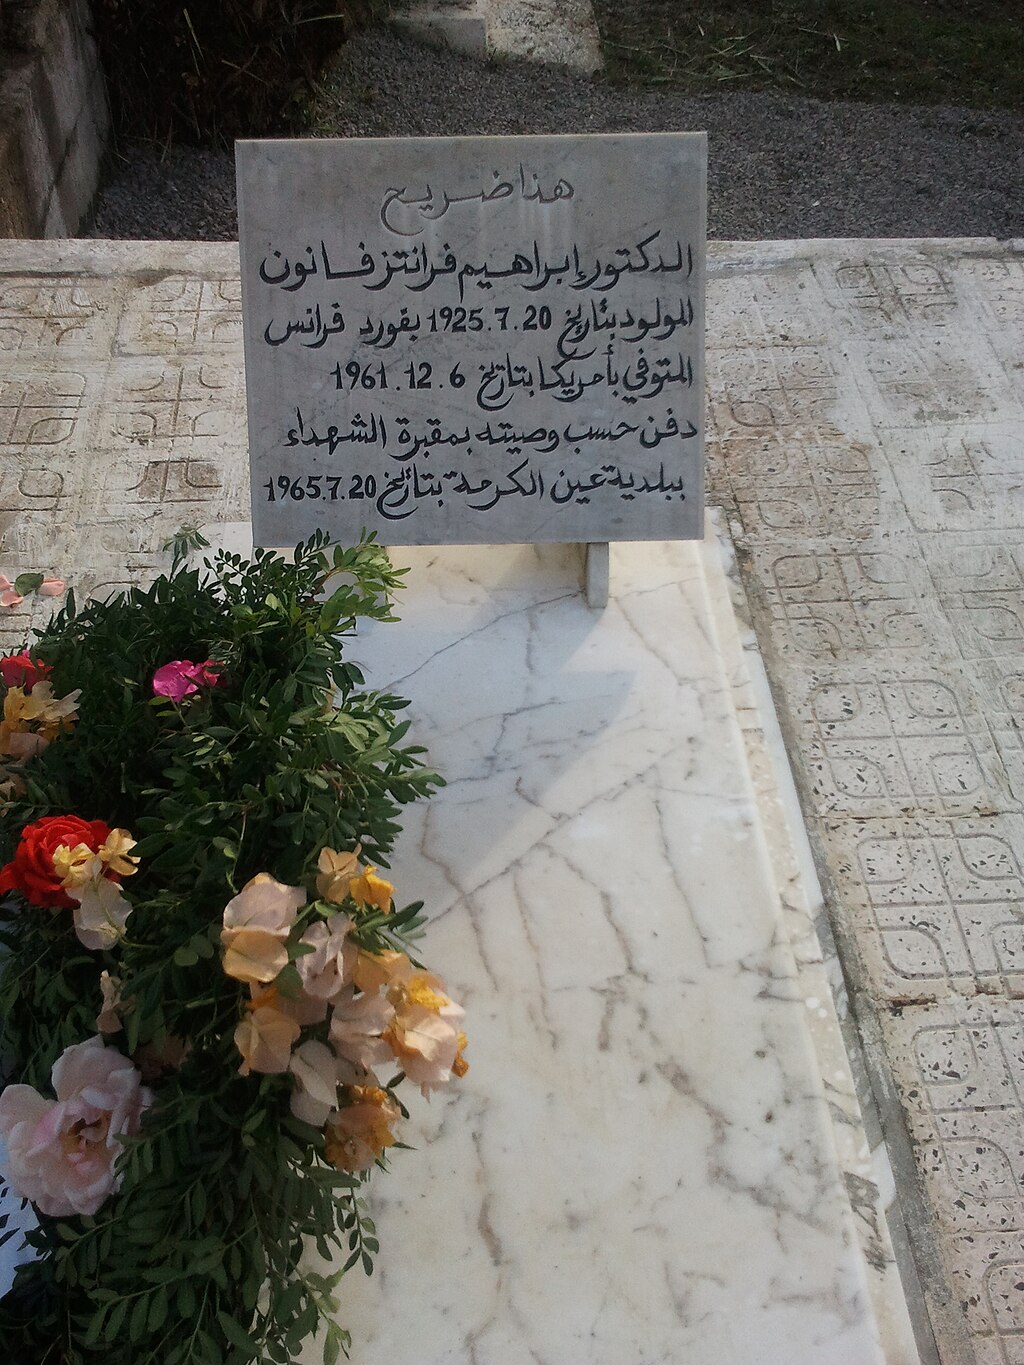 هذا ضريح
الدكتور إبراهيم فرانتز فانون
المولود بتاريخ 1925.7.20 بفورد فرانس
المتوفي بأمريكا بتاريخ 1961.12.6
دفن حسب وصيته بمقبرة الشهداء
ببلدية عين الكرمة بتاريخ 1965.7.20